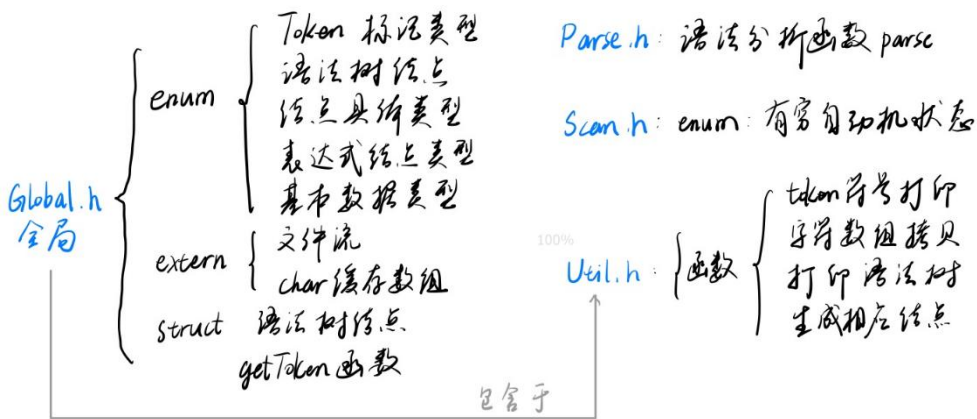 Global.h
全局
enum
Token 标记类型
语法树结点
结点具体类型
表达式结点类型
基本数据类型
extern
文件流
char 缓存数组
struct 语法树结点
getToken 函数
Parse.h: 语法分析函数 parse
Scan.h: enum: 有穷自动机状态
100%
Util.h: 函数
token 符号打印
字符数组拷贝
打印语法树
生成相应结点
包含于